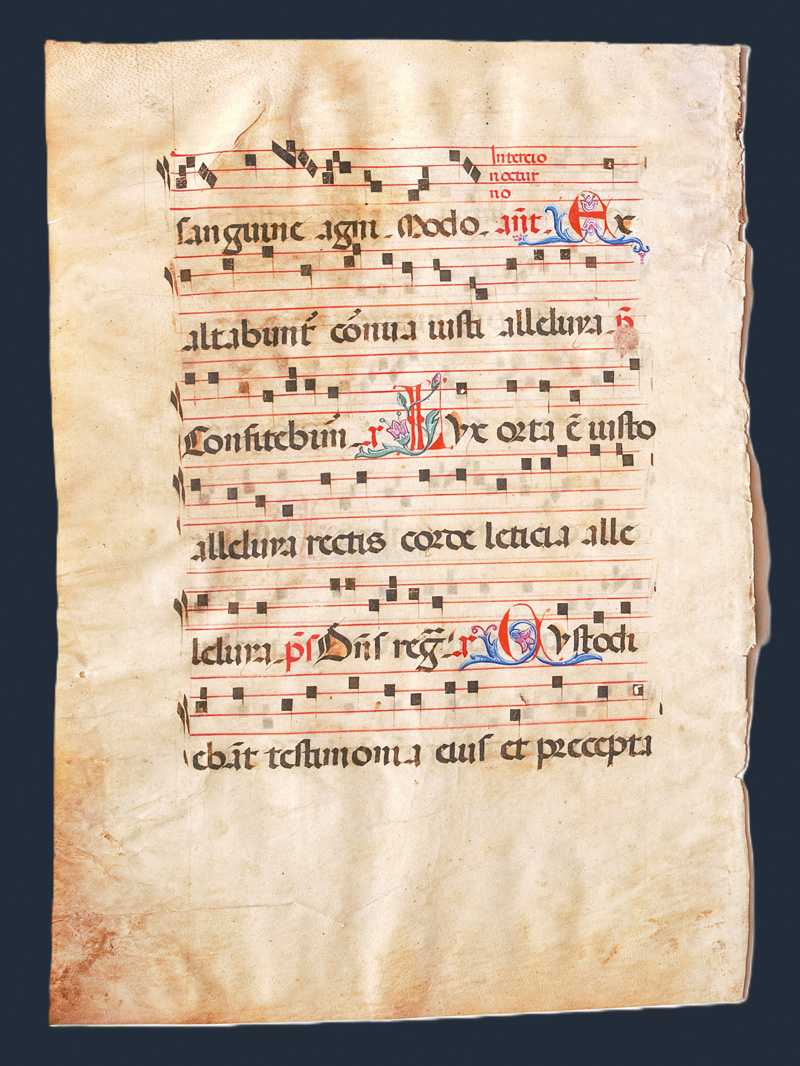 In tercio
noctur
no
sanguine agni. Modo. añt. Ex
altabunt̄ cōnua iusti alleluya. p̄
Confitebim̄. x Lyx orta ē iusto
alleluya rectis corde leticia alle
leluya. p̄s Dn̄s reg̃. x Qystodi
ebāt testimonia eius et precepta